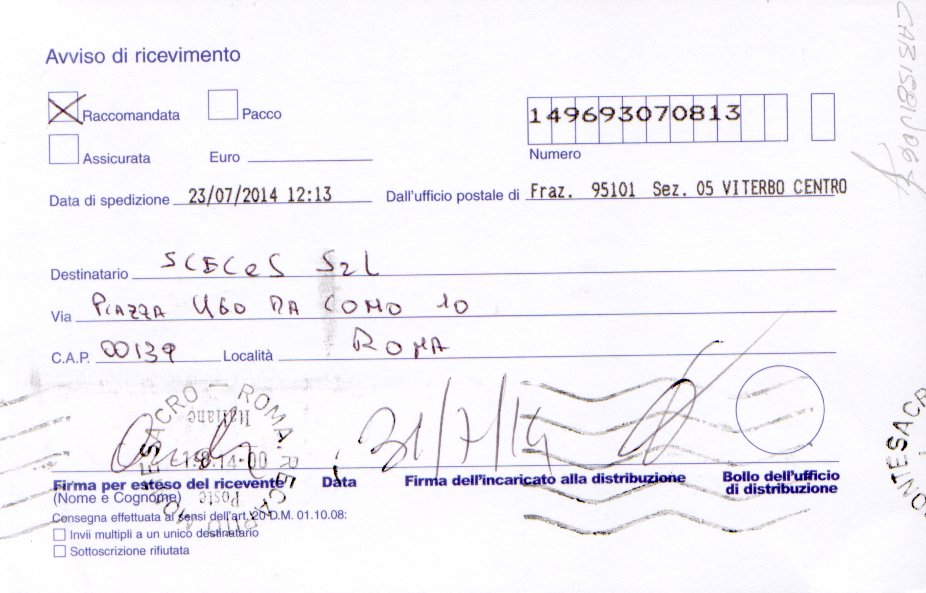 Avviso di ricevimento
Raccomandata Pacco
149693070813
Assicurata Euro
Numero
Data di spedizione 23/07/2014 12:13 Dall'ufficio postale di Fraz. 95101 Sez. 05 VITERBO CENTRO
Destinatario SCECES SrL
Via PIAZZA UGO DA COMO 10
C.A.P. 00139 Località ROMA
ROMA
31/7/14
Firma per esteso del ricevente Data Firma dell'incaricato alla distribuzione Bollo dell'ufficio
(Nome e Cognome) di distribuzione
Consegna effettuata ai sensi dell'art. 20 D.M. 01.10.08:
Invii multipli a un unico destinatario
Sottoscrizione rifiutata